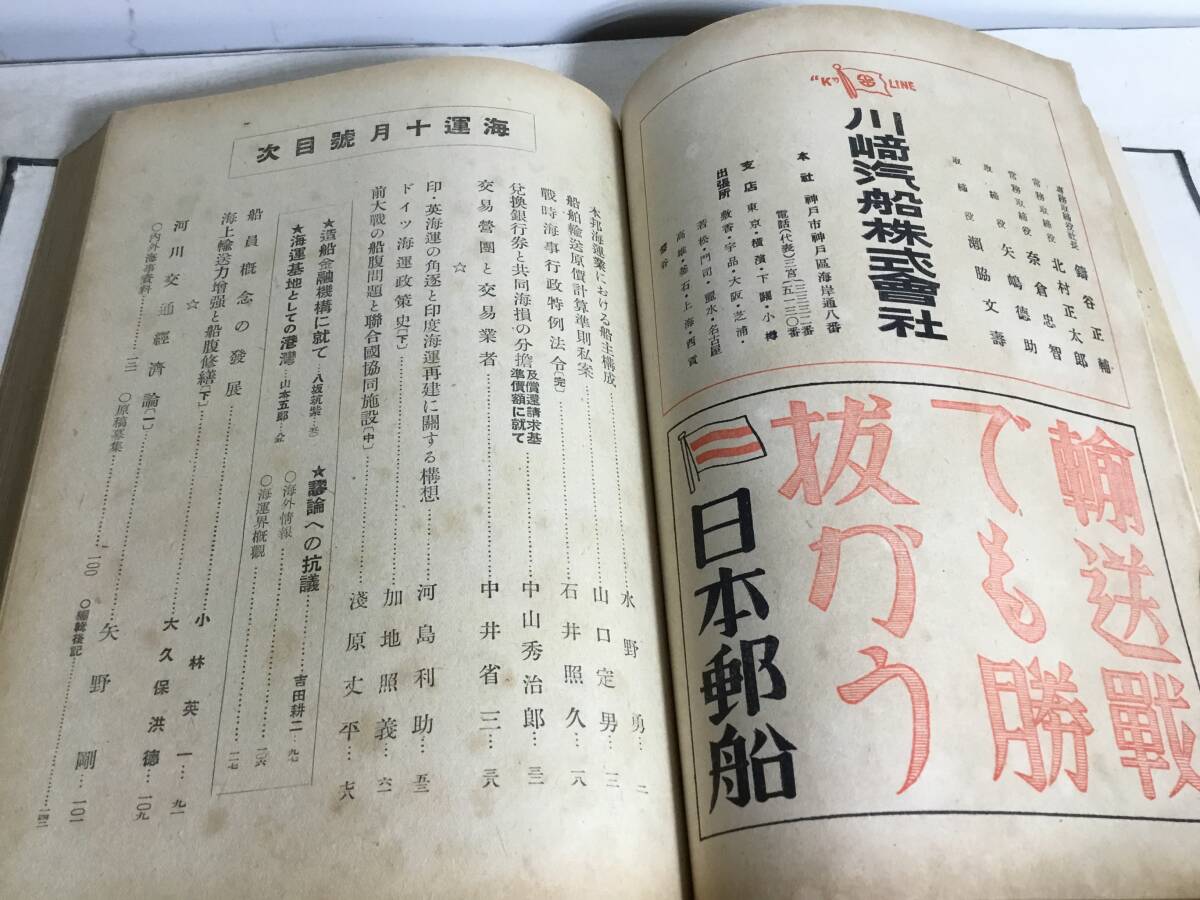 “K” LINE
川崎汽船株式會社
專務取締役社長 鑄谷正輔
常務取締役 北村正太郎
常務取締役 奈倉忠智
取締役 矢嶋德助
取締役 瀬脇文壽
本社 神戸市神戸區海岸通八番
電話(代表)三宮
支店 東京・横濱・下關・小樽
出張所 敷香・宇品・大阪・芝浦・
若松・門司・・名古屋
高雄・釜石・上海・西貢
盤谷
輸送戰
でも勝
拔かう
日本郵船
海運十月號目次
本邦海運業における船主構成……水野勇…二
船舶輸送原價計算準則私案……山口定男…一二
戰時海事行政特例法令〔完〕……石井照久…一八
兌換銀行券と共同海損の分擔及償還請求基準價額に就て……中山秀治郎…三二
交易營團と交易業者……中井省三…三八
☆
印・英海運の角逐と印度海運再建に關する構想……河島利助…五三
ドイツ海運政策史〔下〕……加地照義…六一
前大戰の船腹問題と聯合國協同施設〔中〕……淺原丈平…七六
★造船金融機構に就て…八坂筑紫…
★海運基地としての港灣…山本五郎…
★謬論への抗議……吉田耕二…九七
○海外情報……
○海運界概觀……一〇六
船員概念の發展……一一七
海上輸送力增强と船腹修繕〔下〕……小林英一…九一
☆
河川交通經濟論〔一〕……大久保洪德…一〇九
○内外海事資料……一三一
○原稿募集……一〇〇
○編輯後記……一四二
矢野剛…一〇一